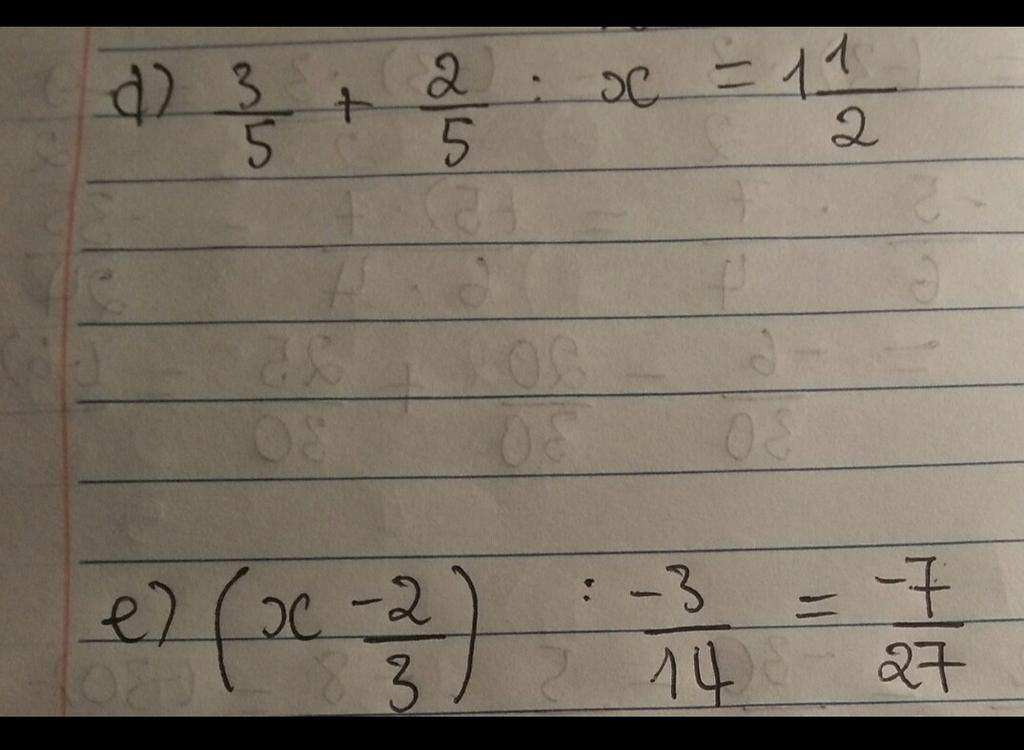 d) 3/5 + 2/5 : x = 1 1/2
e) (x -2/3) : -3/14 = -7/27